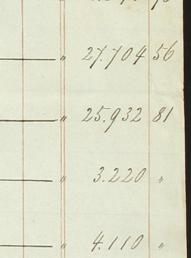 " 27.704 56
" 25.932 81
" 3.220 "
" 4.110 "